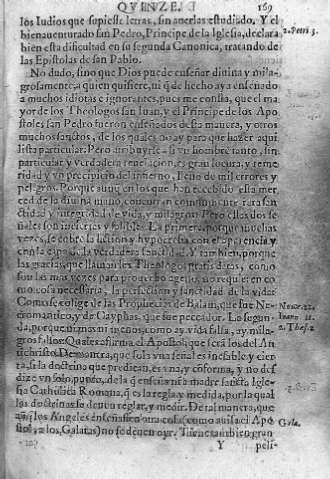 QVINZE. 169
los Iudios que supiesse letras, sin auerlas estudiado. Y el
bienauenturado san Pedro, Principe de la Iglesia, declara
bien esta dificultad en su segunda Canonica, tratando de
las Epistolas de san Pablo.
2. Petri 3.
No dudo, sino que Dios puede enseñar diuina y mila-
grosamente, a quien quisiere, ni que de hecho aya enseñado
a muchos idiotas e ignorantes, pues me consta, que el ma-
yor de los Theologos san Iuan, y el Principe de los Apo-
stoles san Pedro fueron enseñados desta manera, y otros
muchos sanctos, de los quales no ay para que hazer aqui
lista particular. Pero atribuyrse a si vn hombre tanto, sin
particular y verdadera reuelacion, es gran locura, y teme-
ridad y vn precipicio del infierno, lleno de mil errores y
peligros. Porque aunque en los que han recebido esta mer
ced de la diuina mano, concurran comunmente rara san
ctidad y integridad de vida, y milagros: Pero ellas dos se-
ñales son inciertas y falibles. La primera, porque muchas
vezes, se cobre la ficcion y hypocresia con el aperencia y
con la capa de la verdadera sanctidad. Y tambien, porque
las gracias, que llaman los Theologos gratis datas, como
son las mas vezes para prouecho ageno, no requieren co-
mo cosa necessaria, la perfection y sanctidad de la vida:
Como se colige de las Prophecias de Balam, que fue Ne-
cromantico, y de Cayphas, que fue peccador. Lo segun-
da, porque ni mas ni menos, como ay vida falsa, ay mila-
gros falsos: Quales afirma el Apostol, que seran los del An-
thichristo. De manera, que sola vna señal es infalible, y cier-
ta, si la doctrina que predican, es vna, y conforma, y no des
dize vn solo punto, de la que enseña la madre sancta Igle-
sia Catholica Romana, que es la regla y medida, por la qual
las doctrinas se deuen reglar, y medir. De tal manera, que
aunque los Angeles enseñassen otra cosa (como auisa el Apo
stol, a los Galatas) no se deuen oyr. Tienen tambien gran
Numer. 22.
Ioann. 11.
2. Thes. 2
Gala.
Y peli-